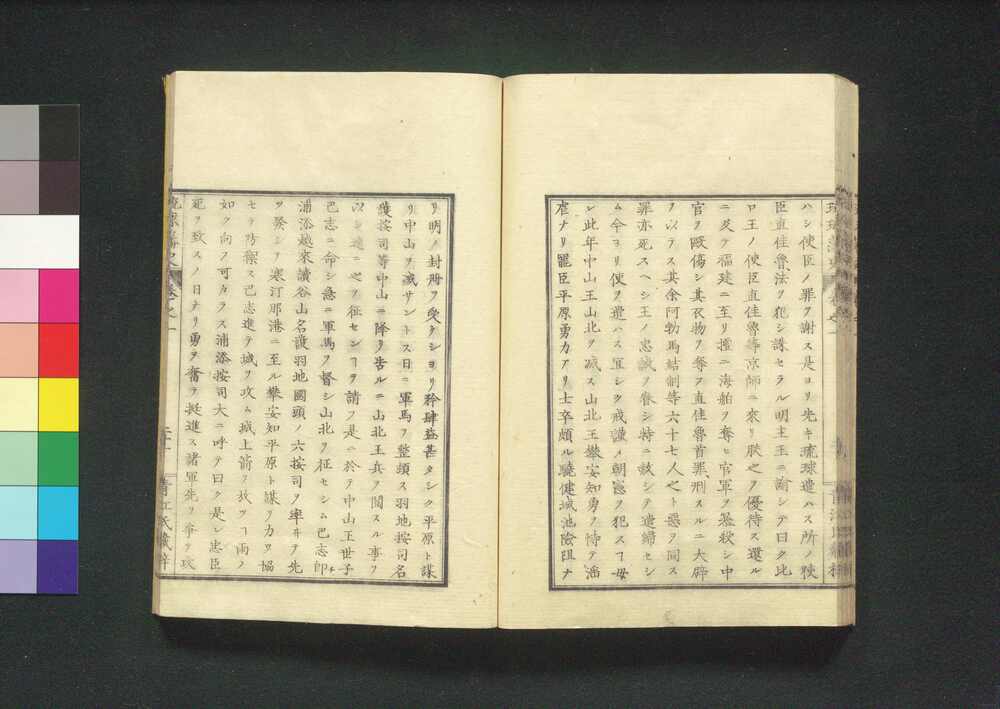 ハシ使臣ノ罪ヲ謝ス是ヨリ先キ琉球遣ハス所ノ使
臣直佳魯法ヲ犯シ誅セラル明主王ニ諭シテ曰ク比
ロ王ノ使臣直佳魯等京師ニ來リ朕之ヲ優待ス還ル
ニ及テ福建ニ至リ擅ニ海舶ヲ奪ヒ官軍ヲ暴殺シ中
官ヲ毆傷シ其衣物ヲ奪フ直佳魯首罪刑スルニ大辟
ヲ以テス其余阿勃馬結制等六十七人之ト惡ヲ同ス
罪亦死スヘシ王ノ忠誠ヲ眷シ特ニ赦シテ遣歸セシ
ム今ヨリ使ヲ遣ハス宜シク戒謹メ朝憲ヲ犯スヿ毋
シ此年中山王山北ヲ滅ス山北王攀安知勇ヲ恃テ滛
虐ナリ罷臣平原勇力アリ士卒頗ル驍健城池險阻ナ
リ明ノ封册ヲ受ケシヨリ矜肆益甚タシク平原ト謀
リ中山ヲ滅サントス日ニ軍馬ヲ整頓ス羽地按司名
護按司等中山ニ降ヲ告ルニ山北王真ヲ聞スル事ヲ
以シ速ニ之ヲ征センヿヲ請フ是ニ於テ中山王世子
巴志ニ命シ急ニ軍馬ヲ督シ山北ヲ征セシム巴志即
浦添越來讀谷山名護羽地國頭ノ六按司ヲ率ヰヲ先
ツ發シ寒汀那港ニ至ル攀安知平原ト謀リ力ヲ協
セテ防禦ス巴志進テ城ヲ攻ム城上箭ヲ放ツヿ雨ノ
如ク向フ可カラス浦添按司大ニ呼テ曰ク是シ忠臣
死ヲ致スノ日ナリ勇ヲ奮テ挺進ス諸軍先ヲ爭テ攻
琉球藩史 卷之一